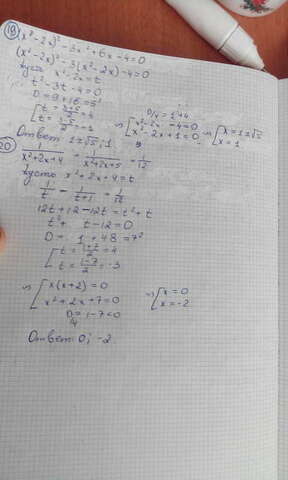 19) (x²-2x)²-3x²+6x-4=0
(x²-2x)²-3(x²-2x)-4=0
пусть x²-2x=t
t²-3t-4=0
D=9+16=5²
[t=(3+5)/2=4
[t=(3-5)/2=-1
D/4=1+4
[x²-2x-4=0
[x²-2x+1=0
[x=1±√5
[x=1
Ответ 1±√5; 1
20) 1/(x²+2x+4) - 1/(x²+2x+5) = 1/12
пусть x²+2x+4=t
1/t - 1/(t+1) = 1/12
12t+12-12t=t²+t
t²+t-12=0
D=1+48=7²
[t=(1+7)/2=4
[t=(1-7)/2=-3
[x(x+2)=0
[x²+2x+7=0
D/4=1-7<0
[x=0
[x=-2
Ответ 0; -2